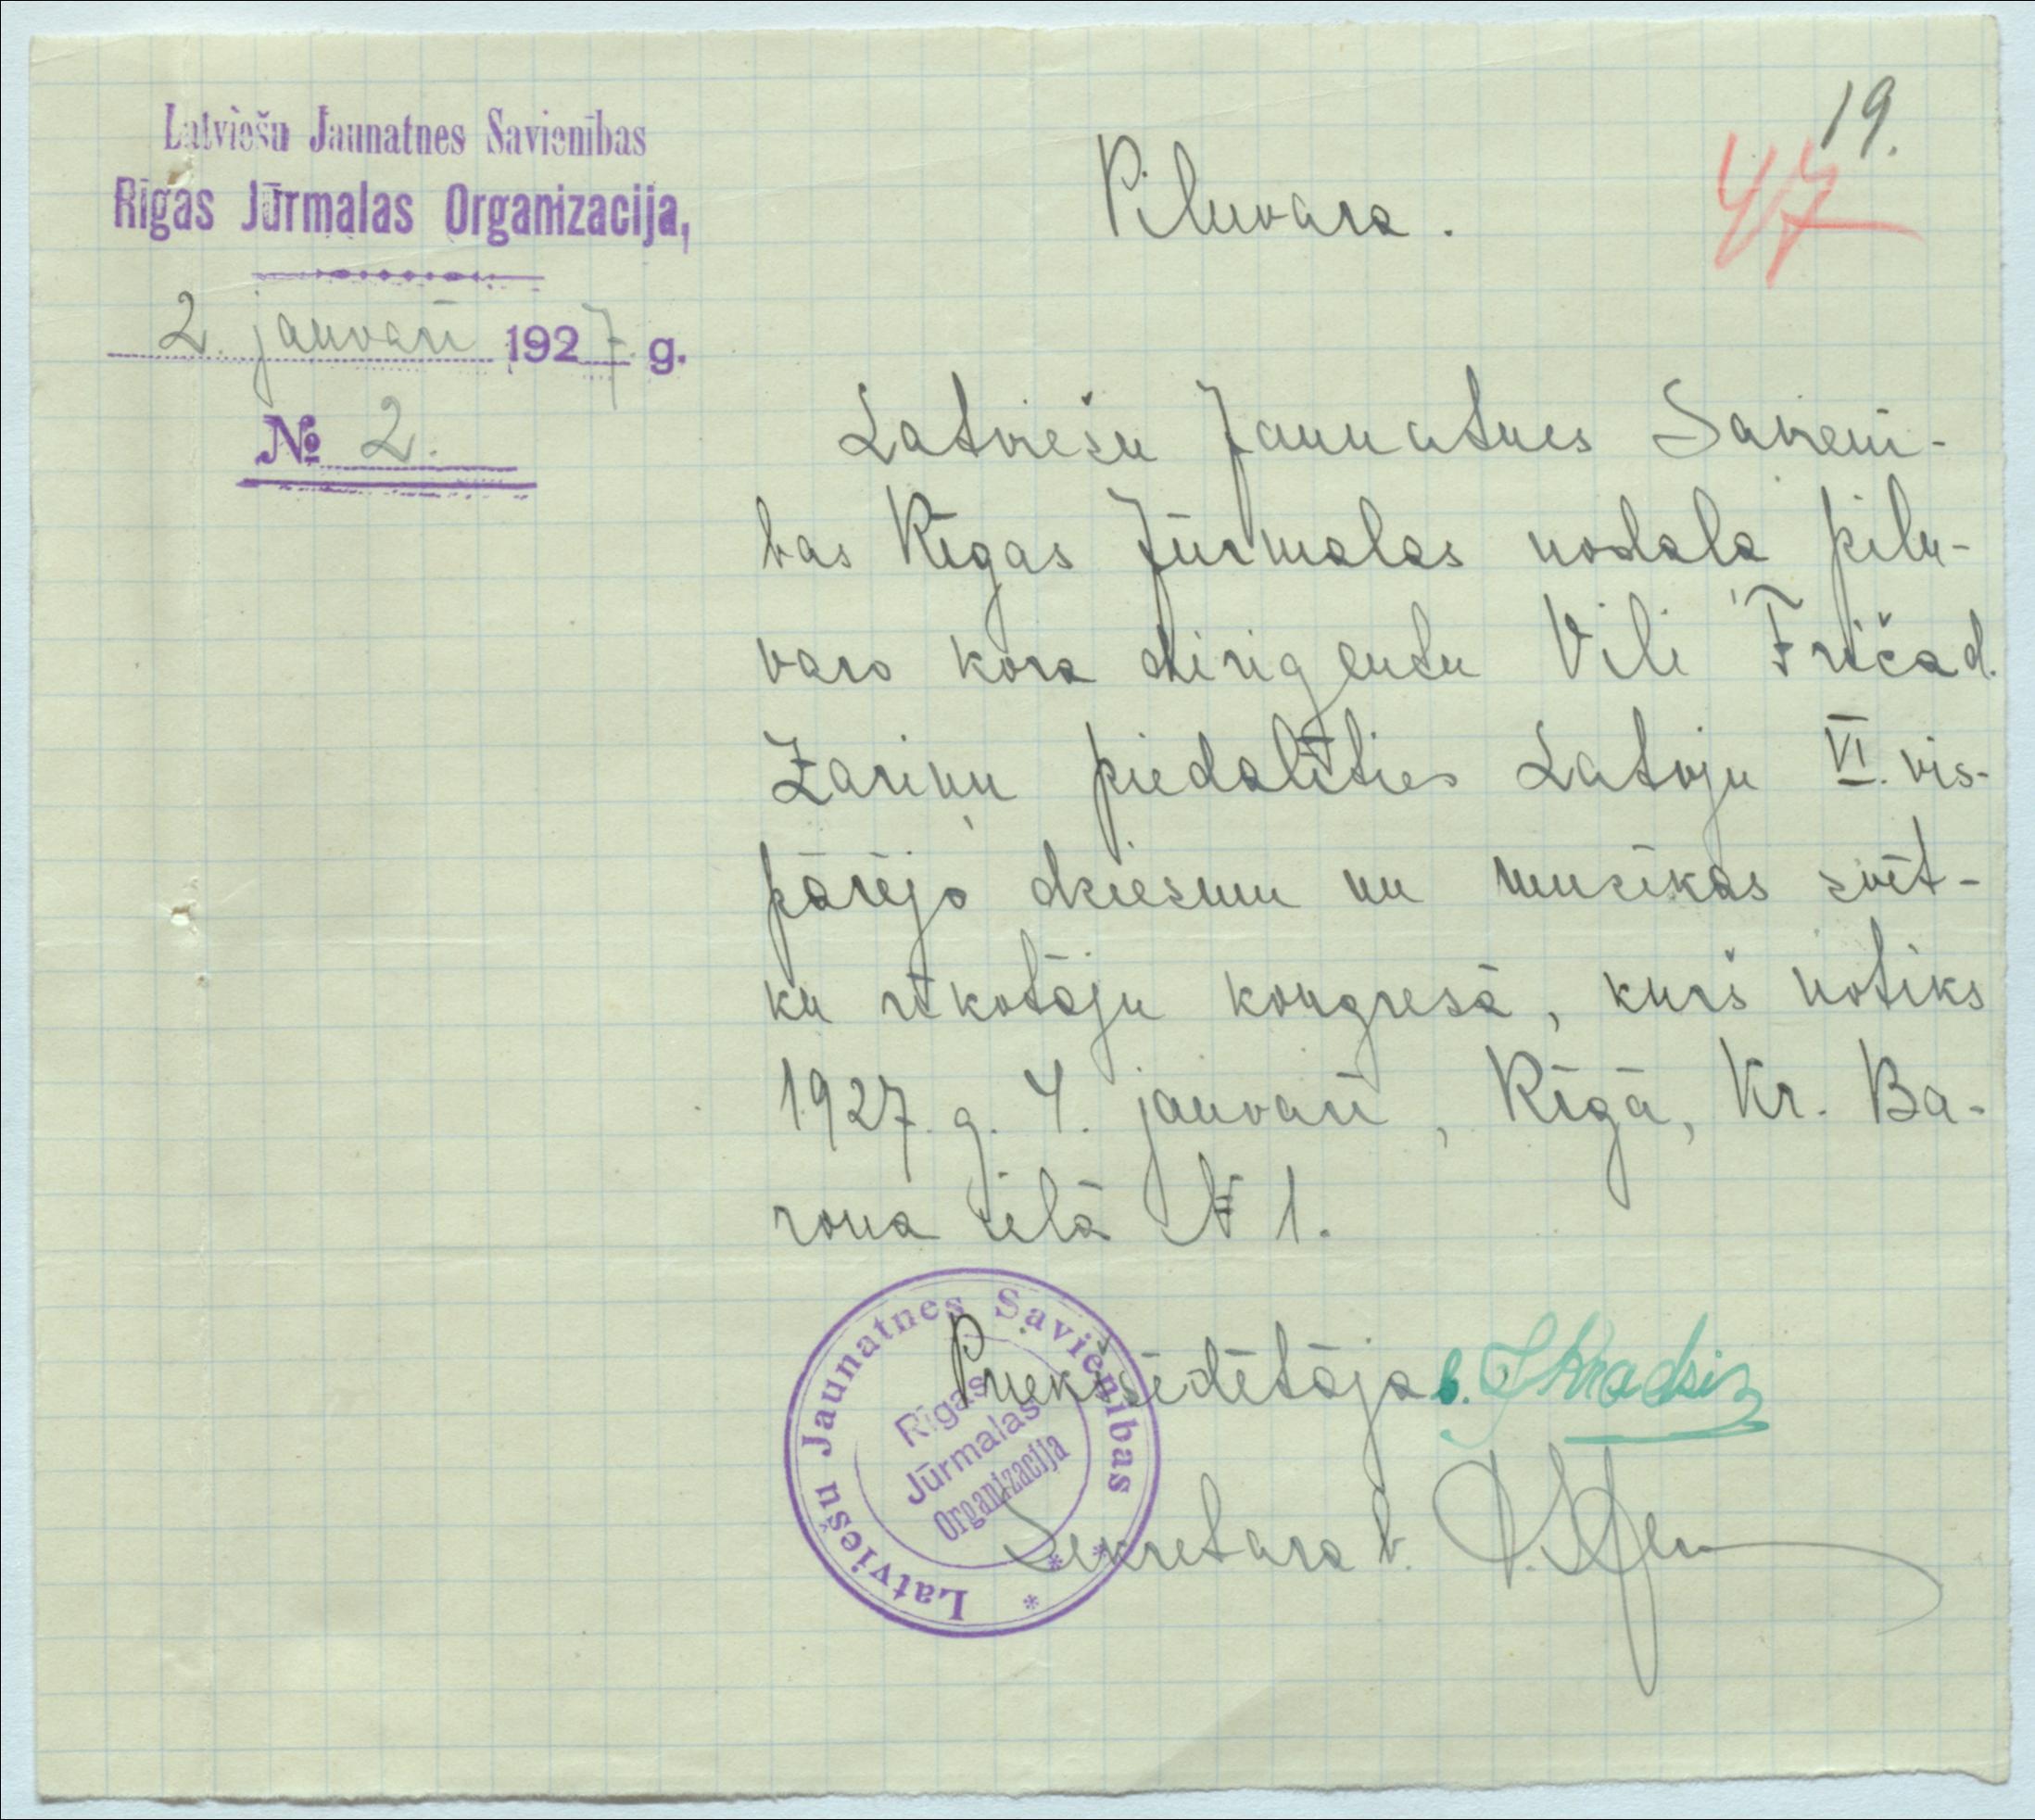 Latviešu Jaunatnes Savienības
Rīgas Jūrmalas Organizacija,
2. janvarī 1927. g.
№ 2.
19.
47
Pilnvara.
Latviešu Jaunatnes Savienī-
bas Rīgas Jūrmalas nodaļa piln-
varo kora dirigentu Vili Friča d.
Zariņu piedalīties Latvju VI. vis-
pārējo dziesmu un muzikas svēt-
ku rīkotāju kongresā, kurš notiks
1927. g. 4. janvarī, Rīgā, Kr. Ba-
rona ielā № 1.
Priekšsēdētāja b.
Sekretara b.
Latviešu Jaunatnes Savienības
Rīgas
Jūrmalas
Organizacija